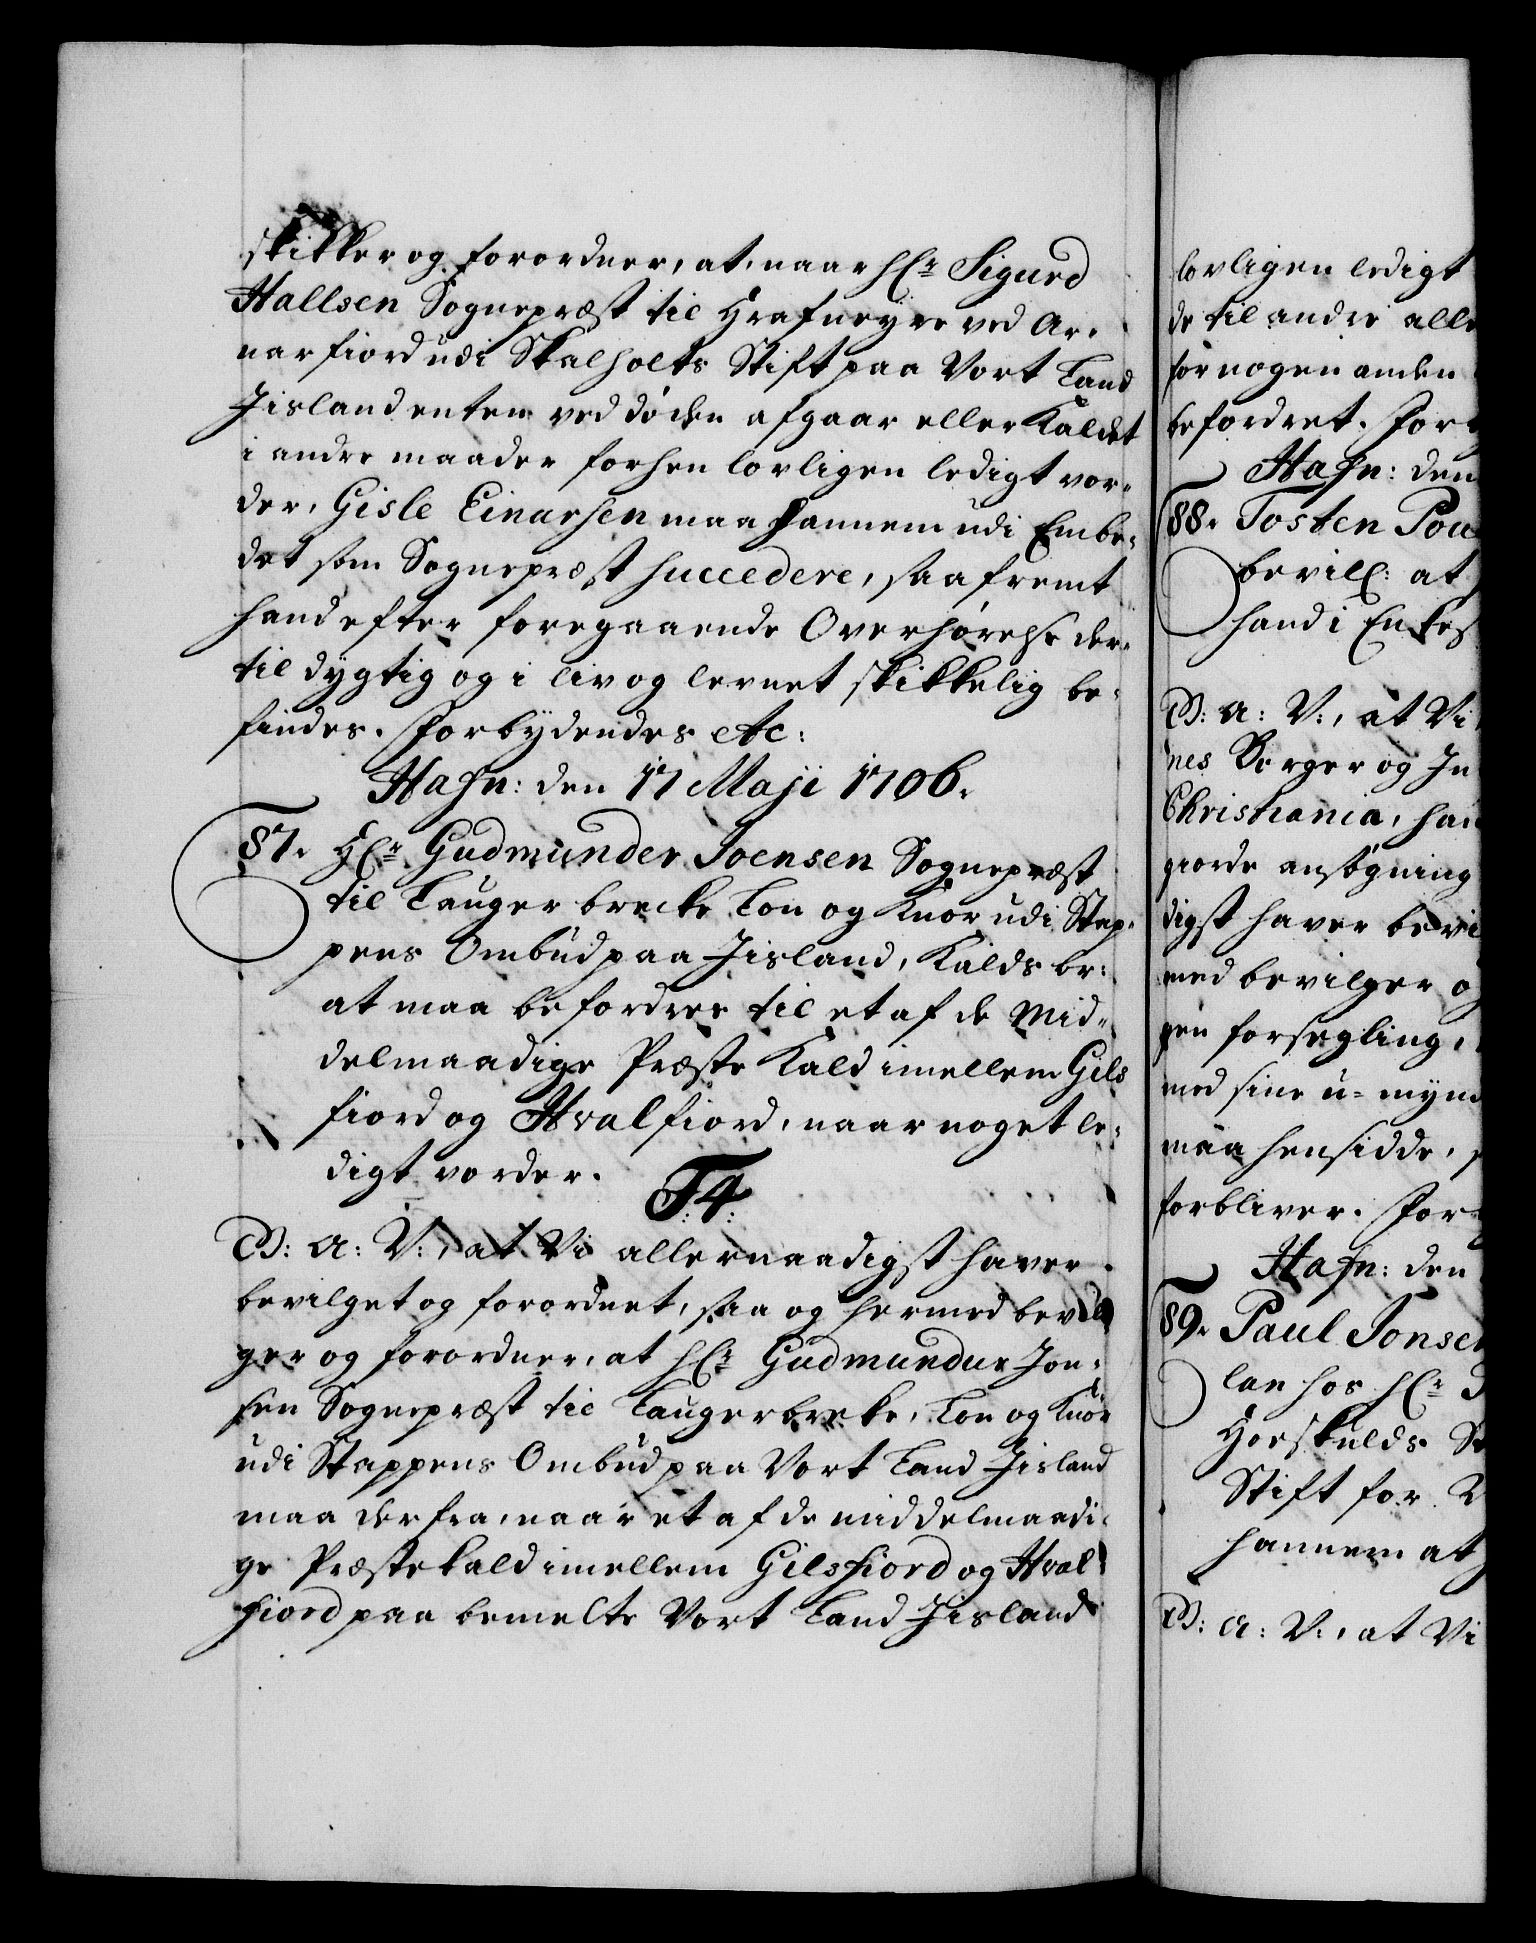 skikker og forordner, at, naar Hr. Sigurd
Hallsen Sognepræst til Hrafneyre ved Ar-
nar fiord udi Skalholts Stift paa Vort Land
Jisland enten ved døden afgaar eller Kaldet
i andre maader forhen lovligen ledigt vor-
der, Gisle Einarsen maa hannem udi Embe-
det som Sognepræst succedere, saa fremt
hand efter foregaaende Overhørelse der-
til dygtig og i liv og levnet skikkelig be-
findes. Forbydendes etc:
Hafn: den 17 Maji 1706.
87. Hr. Gudmunder Joensen Sognepræst
til Lauger brecke Lon og Knør udi Stap-
pens Ombud paa Jisland, Kalds br:
at maa befordres til et af de Mid-
delmaadige Præste Kald imellem Gils
fiord og Hvalfiord, naar noget le-
digt vorder.
F4
G: A: V:, at Vi allernaadigst haver
bevilget og forordnet, saa og hermed bevil
ger og forordner, at Hr. Gudmundur Jon-
sen Sognepræst til Laugerbrecke, Lon og Knør
udi Stappens Ombud paa Vort Land Jisland
maa derfra, naar et af de middelmaadi-
ge Præstekald imellem Gilsfiord og Hval
fiord paa bemelte Vort Land Jisland
lovligen ledigt
de til andre alle
før nogen anden
befordret. For
Hafn: den
88. Tosten Pou
bevill: at
hand i Enkes
G: A: V:, at Vi
nes Borger og In
Christiania, han
giorde ansøgning
digst haver bevi
med bevilger o
gen forsegling,
med sine u-mynd
maa hensidde,
forbliver. For
Hafn: den
89. Paul Jonsen
lan hos Hr.
Horskulds St
Stift for
hannem at
G: A: V:, at Vi